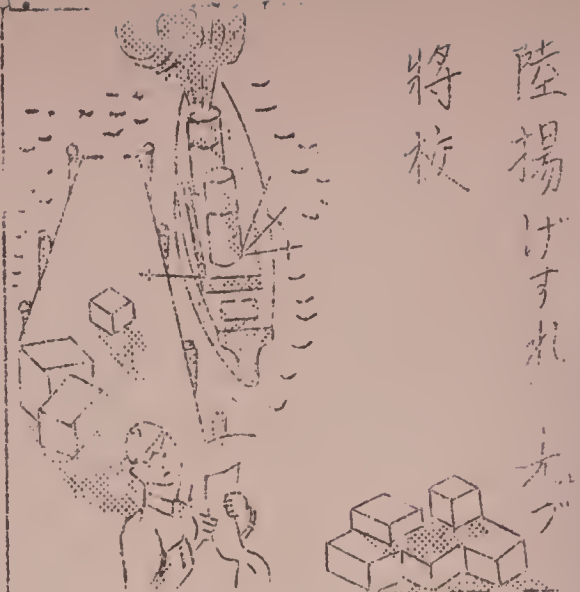 陸揚げすれ
將校